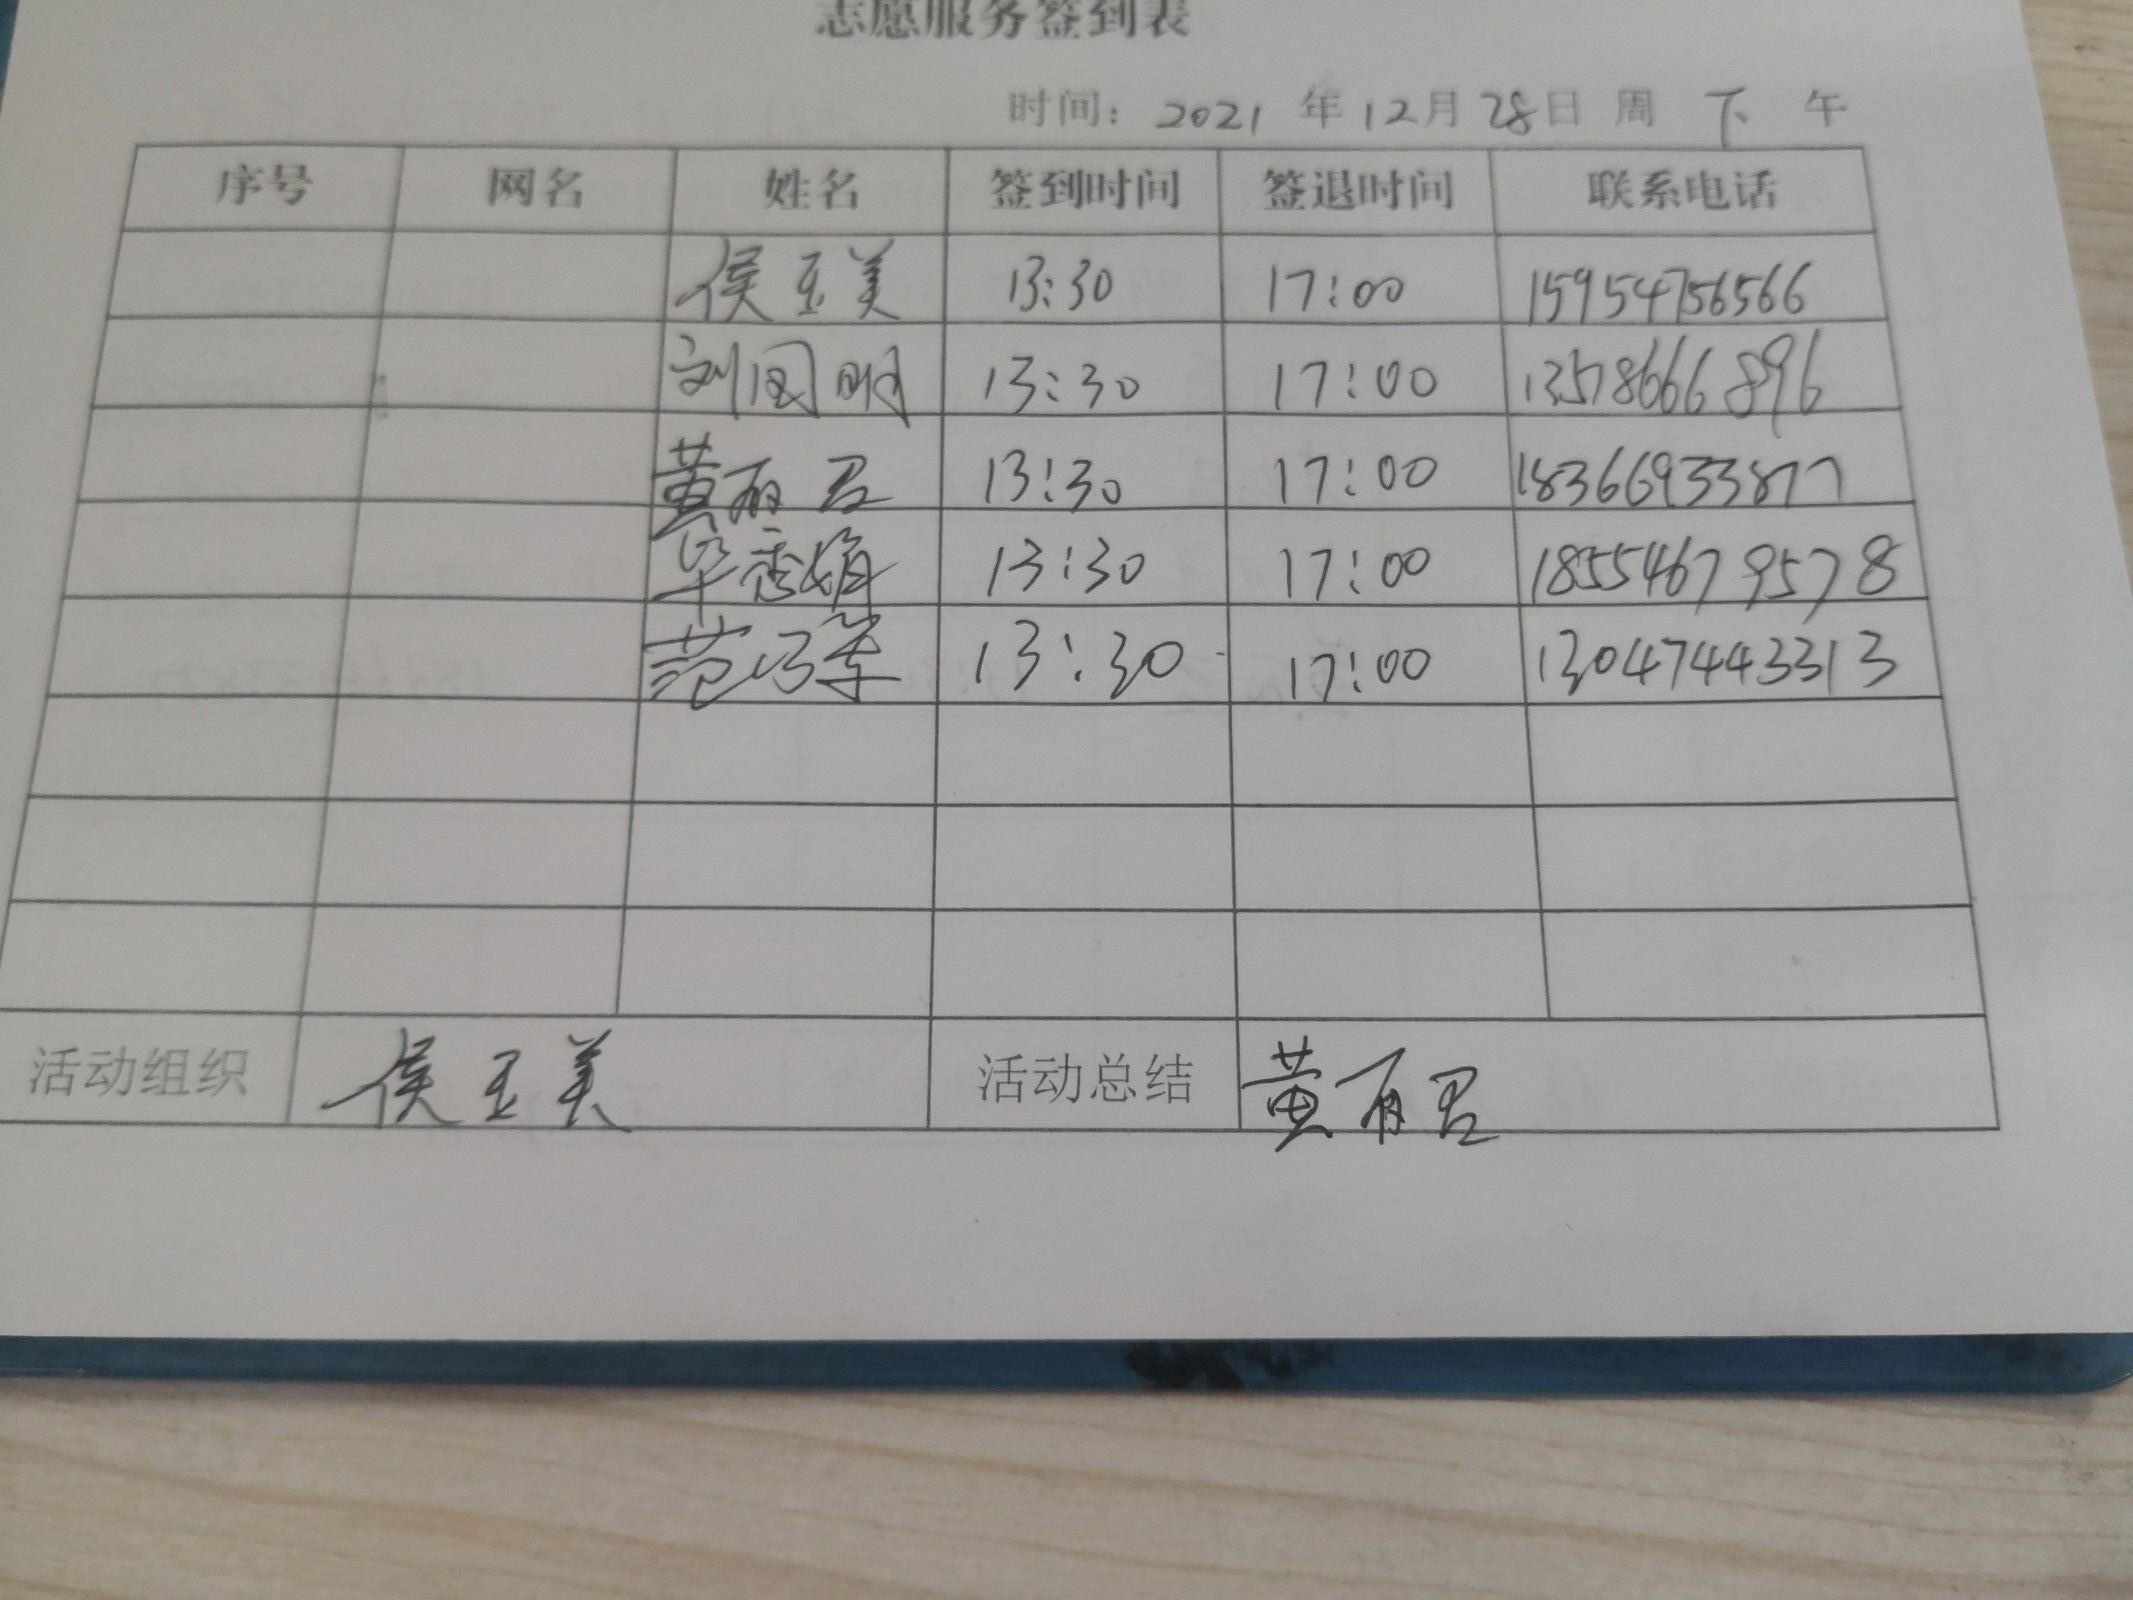 志愿服务签到表
时间: 2021 年 12月 28日 周 下 午
序号 网名 姓名 签到时间 签退时间 联系电话
侯玉美 13:30 17:00 15954756566
刘国明 13:30 17:00 13578666896
黄丽君 13:30 17:00 18366933877
毕秀娟 13:30 17:00 18554679578
范 13:30 17:00 13047443313
活动组织 侯玉美 活动总结 黄丽君